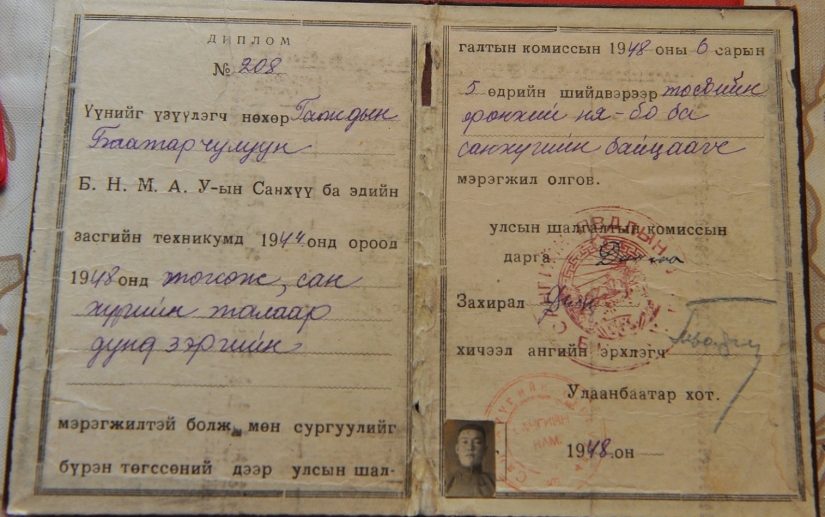 ДИПЛОМ
№ 208
Үүнийг үзүүлэгч нөхөр
Баатарчулуун
Б. Н. М. А. У-ын Санхүү ба эдийн
засгийн техникумд 1944 онд ороод
1948 онд төгсөж, сан
хүүгийн талаар
дунд зэргийн
мэрэгжилтэй болж, мөн сургуулийг
бүрэн төгссөний дээр улсын шал-
галтын комиссын 1948 оны 6 сарын
5 өдрийн шийдвэрээр төсвийн
ерөнхий ня-бо ба
санхүүгийн байцаагч
мэрэгжил олгов.
улсын шалгалтын комиссын
дарга
Захирал
хичээл ангийн эрхлэгч
Улаанбаатар хот.
1948 он